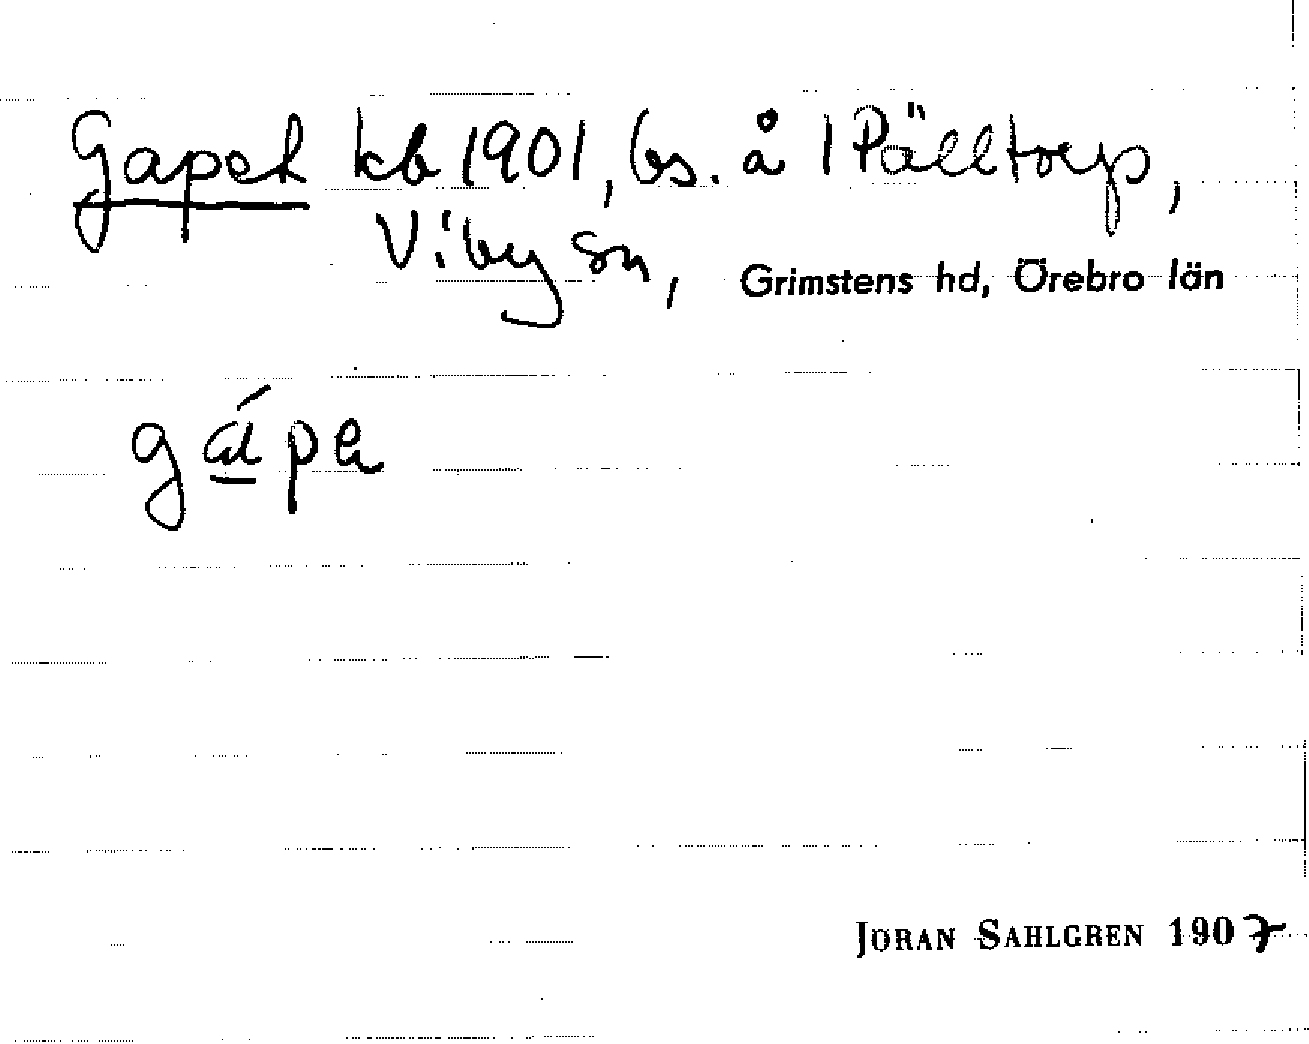 Gapet kb 1901, bs. å 1 Pälltorp,
Viby sn, Grimstens hd, Örebro län
gápe
JÖRAN SAHLGREN 1907